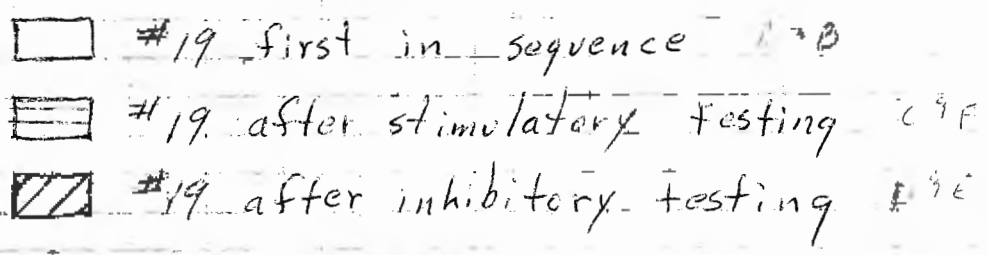 #19 first in sequence
#19. after stimulatory testing
#19 after inhibitory testing